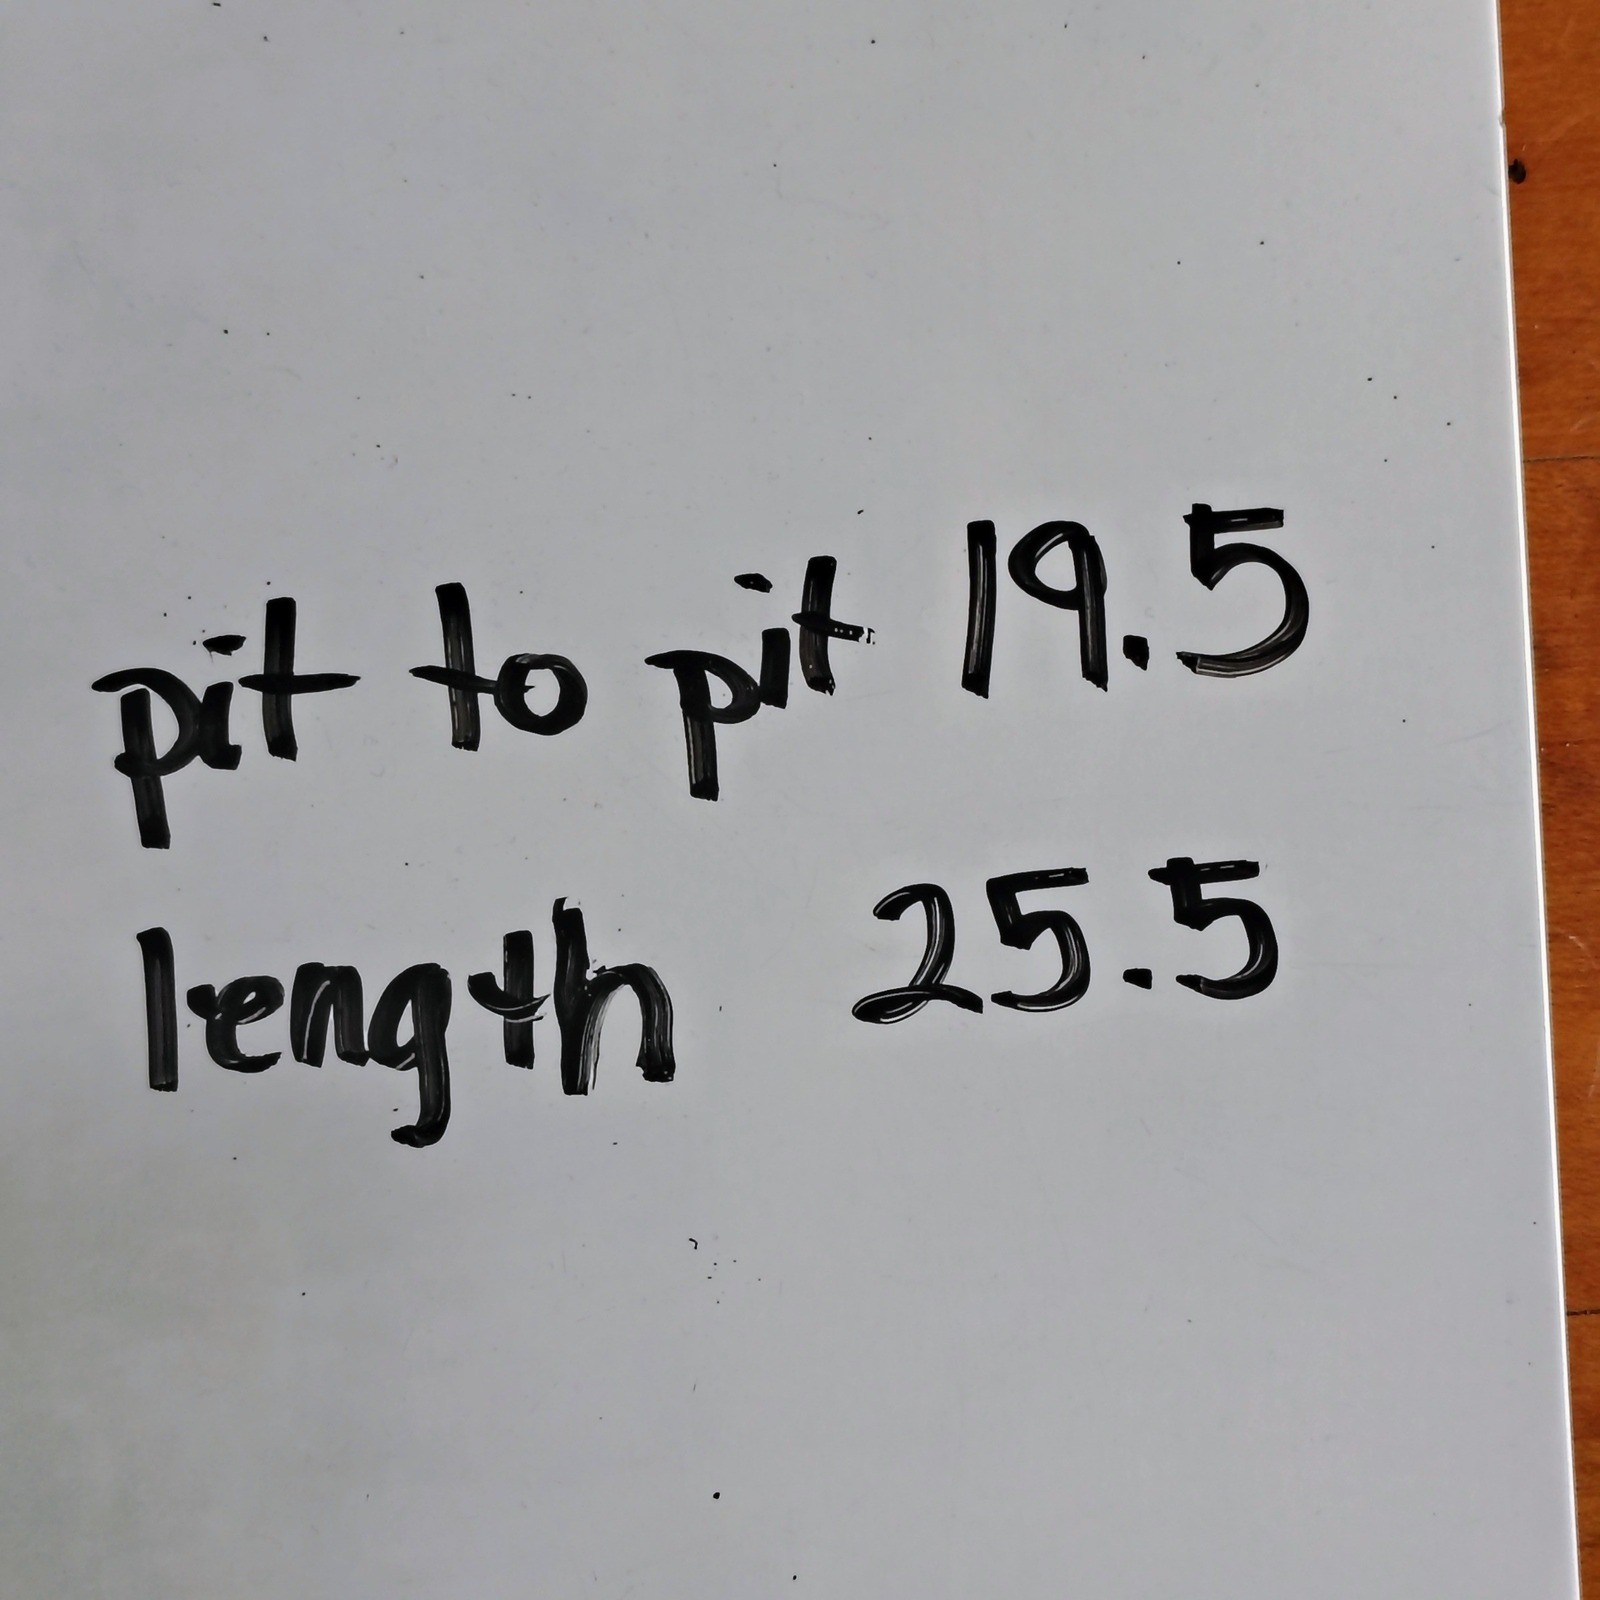 pit to pit 19.5
length 25.5